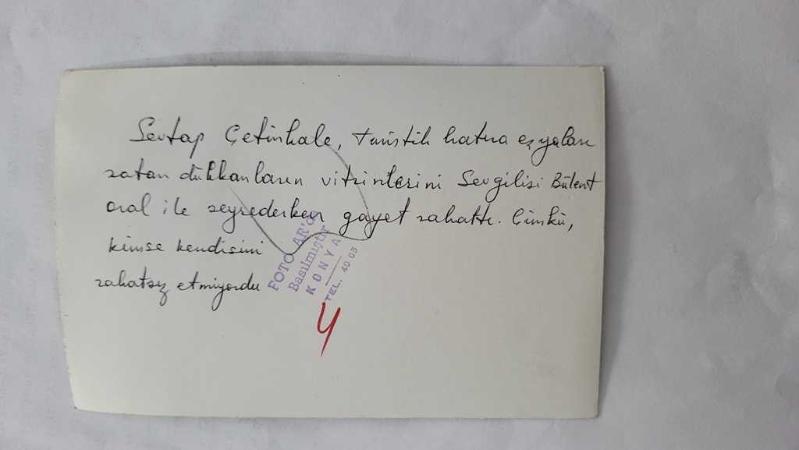 Sevtap Çetinkale, turistik hatıra eşyaları
satan dükkanların vitrinlerini Sevgilisi Bülent
oral ile seyrederken gayet rahattı. Çünkü,
kimse kendisini
rahatsız etmiyordu
FOTO
Basılmıştır
KONYA
TEL. 40 03
4